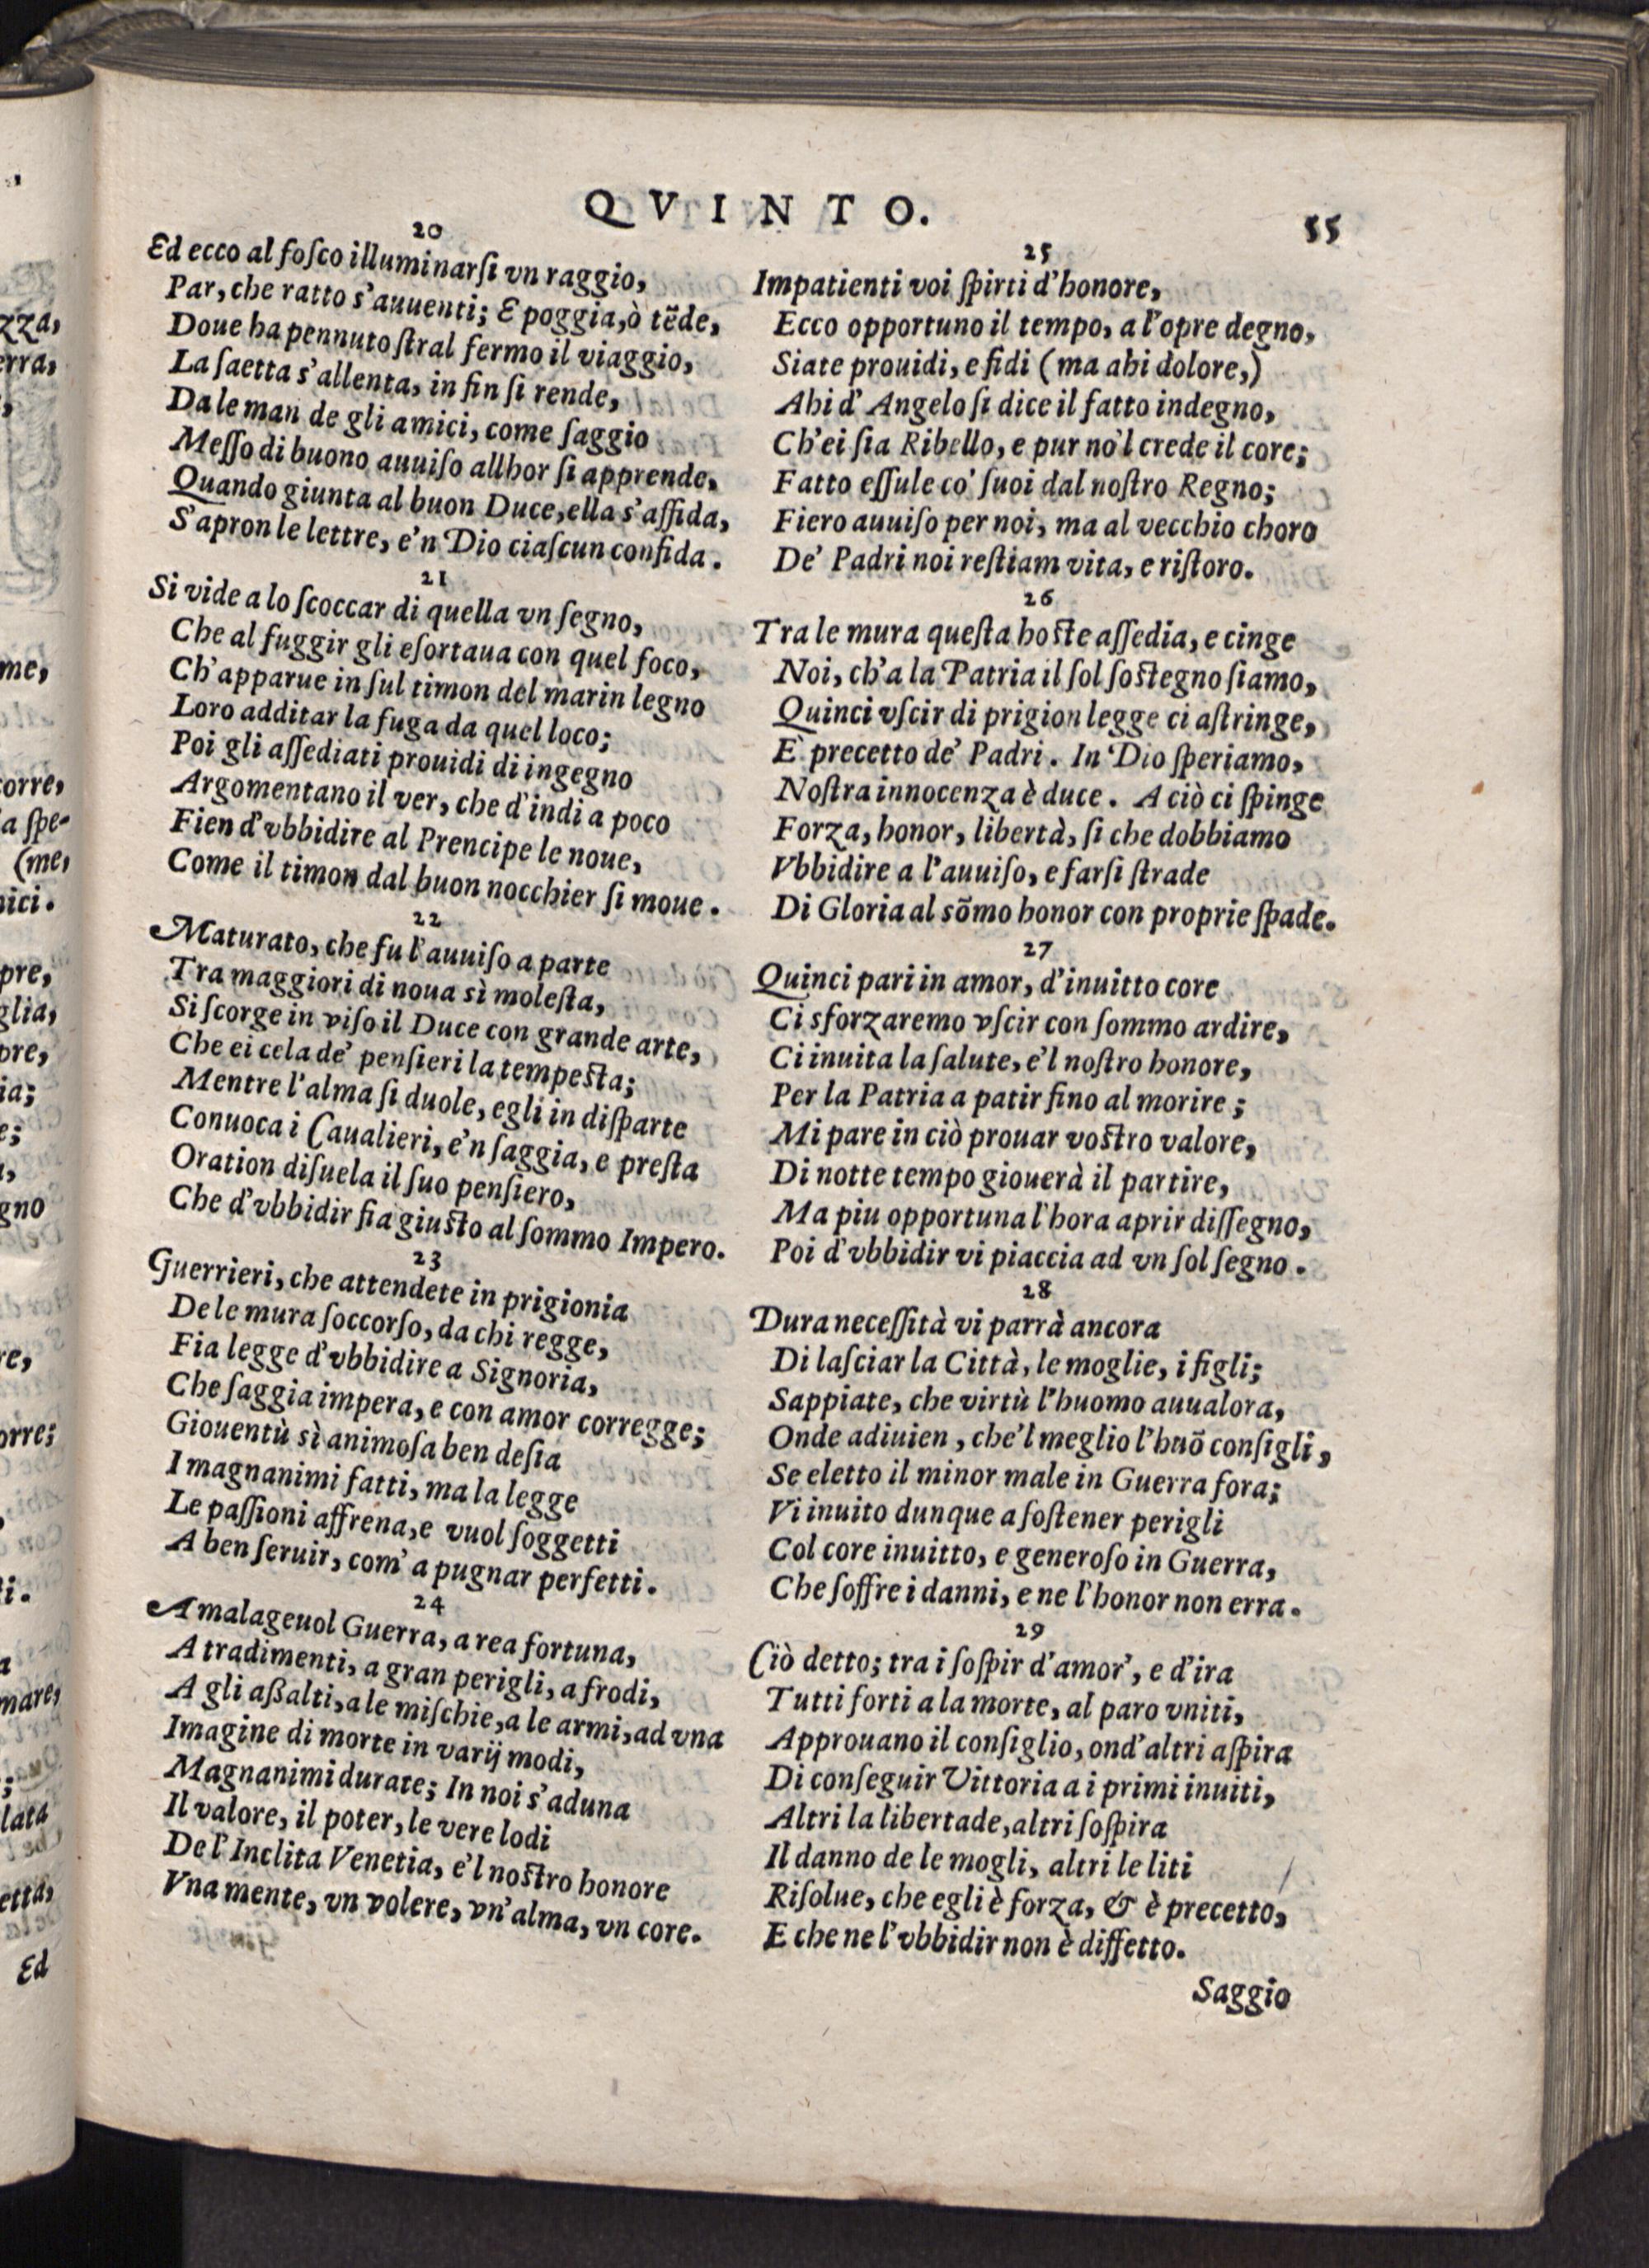 QVINTO.
55
20
Ed ecco al foſco illuminarſi vn raggio,
Par, che ratto s'auuenti; E poggia, ò tẽde,
Doue ha pennuto ſtral fermo il viaggio,
La ſaetta s'allenta, in fin ſi rende,
Da le man de gli amici, come ſaggio
Meſſo di buono auuiſo allhor ſi apprende.
Quando giunta al buon Duce, ella s'affida,
S'apron le lettre, e'n Dio ciaſcun confida.
21
Si vide a lo ſcoccar di quella vn ſegno,
Che al fuggir gli eſortaua con quel foco,
Ch'apparue in ſul timon del marin legno
Loro additar la fuga da quel loco;
Poi gli aſſediati prouidi di ingegno
Argomentano il ver, che d'indi a poco
Fien d'vbbidire al Prencipe le noue,
Come il timon dal buon nocchier ſi moue.
22
Maturato, che fu l'auuiſo a parte
Tra maggiori di noua sì moleſta,
Si ſcorge in viſo il Duce con grande arte,
Che ei cela de' penſieri la tempeſta;
Mentre l'alma ſi duole, egli in diſparte
Conuoca i Caualieri, e'n ſaggia, e preſta
Oration diſuela il ſuo penſiero,
Che d'vbbidir fia giuſto al ſommo Impero.
23
Guerrieri, che attendete in prigionia
De le mura ſoccorſo, da chi regge,
Fia legge d'vbbidire a Signoria,
Che ſaggia impera, e con amor corregge;
Giouentù sì animoſa ben deſia
I magnanimi fatti, ma la legge
Le paſſioni affrena, e vuol ſoggetti
A ben ſeruir, com' a pugnar perfetti.
24
A malageuol Guerra, a rea fortuna,
A tradimenti, a gran perigli, a frodi,
A gli aßalti, a le miſchie, a le armi, ad vna
Imagine di morte in varij modi,
Magnanimi durate; In noi s'aduna
Il valore, il poter, le vere lodi
De l'Inclita Venetia, e'l noſtro honore
Vna mente, vn volere, vn'alma, vn core.
25
Impatienti voi ſpirti d'honore,
Ecco opportuno il tempo, a l'opre degno,
Siate prouidi, e fidi (ma ahi dolore,)
Ahi d'Angelo ſi dice il fatto indegno,
Ch'ei ſia Ribello, e pur no'l crede il core;
Fatto eſſule co' ſuoi dal noſtro Regno;
Fiero auuiſo per noi, ma al vecchio choro
De' Padri noi reſtiam vita, e riſtoro.
26
Tra le mura queſta hoſte aſſedia, e cinge
Noi, ch'a la Patria il ſol ſoſtegno ſiamo,
Quinci vſcir di prigion legge ci aſtringe,
E precetto de' Padri. In Dio ſperiamo,
Noſtra innocenza è duce. A ciò ci ſpinge
Forza, honor, libertà, ſi che dobbiamo
Vbbidire a l'auuiſo, e farſi ſtrade
Di Gloria al sõmo honor con proprie ſpade.
27
Quinci pari in amor, d'inuitto core
Ci sforzaremo vſcir con ſommo ardire,
Ci inuita la ſalute, e'l noſtro honore,
Per la Patria a patir fino al morire;
Mi pare in ciò prouar voſtro valore,
Di notte tempo giouerà il partire,
Ma piu opportuna l'hora aprir diſſegno,
Poi d'vbbidir vi piaccia ad vn ſol ſegno.
28
Dura neceſſità vi parrà ancora
Di laſciar la Città, le moglie, i figli;
Sappiate, che virtù l'huomo auualora,
Onde adiuien, che'l meglio l'huõ conſigli,
Se eletto il minor male in Guerra fora;
Vi inuito dunque a ſoſtener perigli
Col core inuitto, e generoſo in Guerra,
Che ſoffre i danni, e ne l'honor non erra.
29
Ciò detto; tra i ſoſpir d'amor', e d'ira
Tutti forti a la morte, al paro vniti,
Approuano il conſiglio, ond'altri aſpira
Di conſeguir Vittoria a i primi inuiti,
Altri la libertade, altri ſoſpira
Il danno de le mogli, altri le liti
Riſolue, che egli è forza, & è precetto,
E che ne l'vbbidir non è diffetto.
Saggio
zza,
erra,
me,
corre,
a ſpe-
(me,
nici.
pre,
glia,
pre,
ia;
e;
gno
re,
orre;
ti.
a
mare,
lata
etta,
Ed